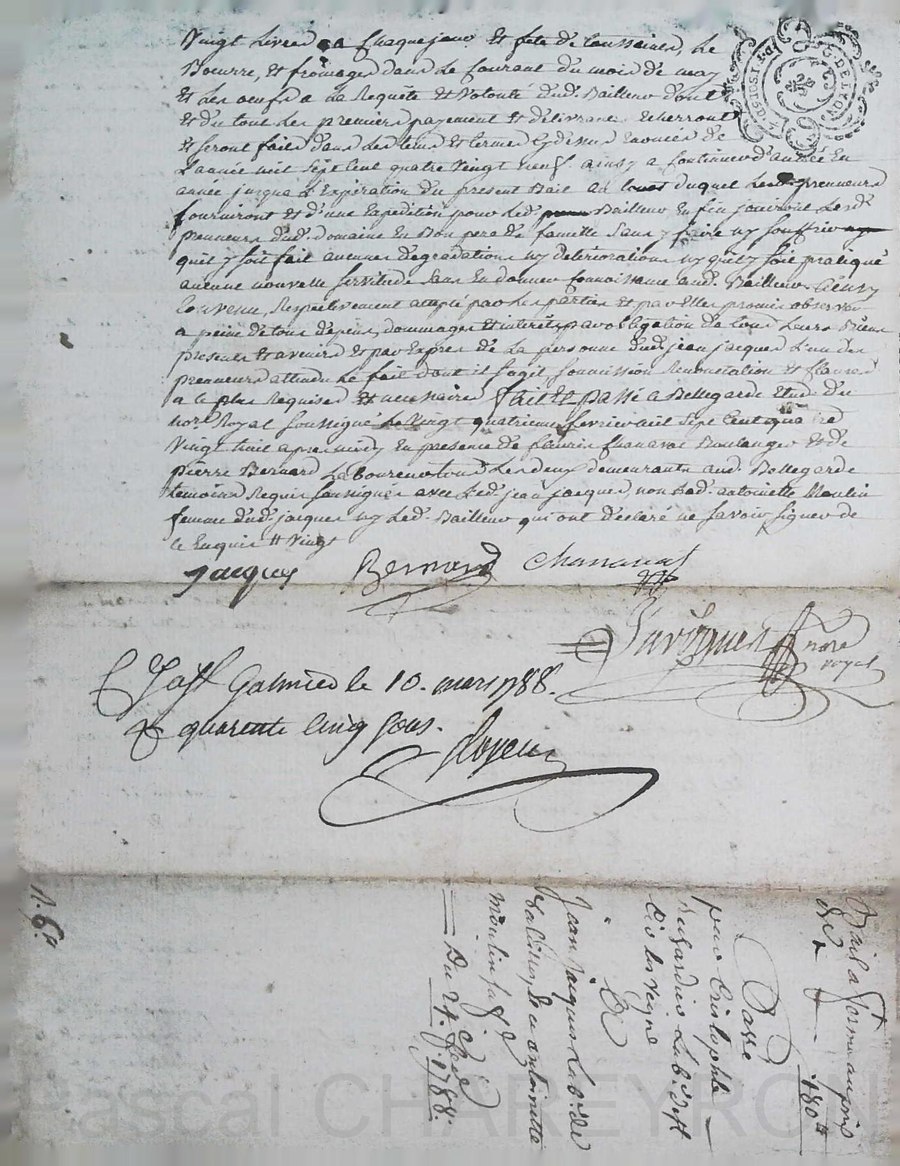 vingt livres a chaque jour et fete de toussaines, Le
Beurre, et fromages dans Le Courant du mois de may
et Les oeufs a La Requête et volonté dud. Bailleur dont
et du tout Les premiers payement et délivrance echerront
et seront faits dans Les tems et termes cy dessus Enoncés de
L'année mil sept Cent quatre vingt neuf ainsy a Continuer d'année En
année jusqua L'Expiration du present Bail au duquel Les preneurs
fourniront et d'une Expedition pour Led. Bailleur, En fin jouiront Lesd.
preneurs dud. domaine En Bon pere de famille sans y faire ny souffrir
quil y soit fait aucunes dégradations ny deteriorations ny quil y soit pratiqué
aucune nouvelle servitude sans En donner Connoissance aud. Bailleur Ainsy
Convenu, Respectivement accepté par Les parties et par Elles promis observer
a peine de tous depens, dommages et interêts par obligation de tous Leurs Biens
presents et avenirs et par Exprès de La personne dud. jean jacques L'un des
preneurs attendu Le fait dont il s'agit soumission Renonciation et Clauses
a ce plus Requises et necessaires fait et passé a Bellegarde Etude du
notre Royal soussigné Le vingt quatrieme fevrier mil sept Cent quatre
vingt huit apres midy En presence de fleurie Chanavat Boulanger et de
pierre Bernard Laboureur tous Les deux demeurants aud. Bellegarde
temoins Requis soussignés avec Led. jean jacques, non Lad. antoinette Moulin
femme dud. jacques ny Led. Bailleur qui ont déclaré ne savoir signer de
ce Enquis # vingt
jacques Bernard Chanavat
nore
royal
Galmier le 10. mars 1788.
quarente Cinq sous.
Bail a ferme au prix
de 180 #
Passé
par Cristophle
Lab. de St
Et
Jean Jacques Lab. de
et antoinette
moulin sa fe
Du 24. fevr. 1788.
Pascal CHAREYRON